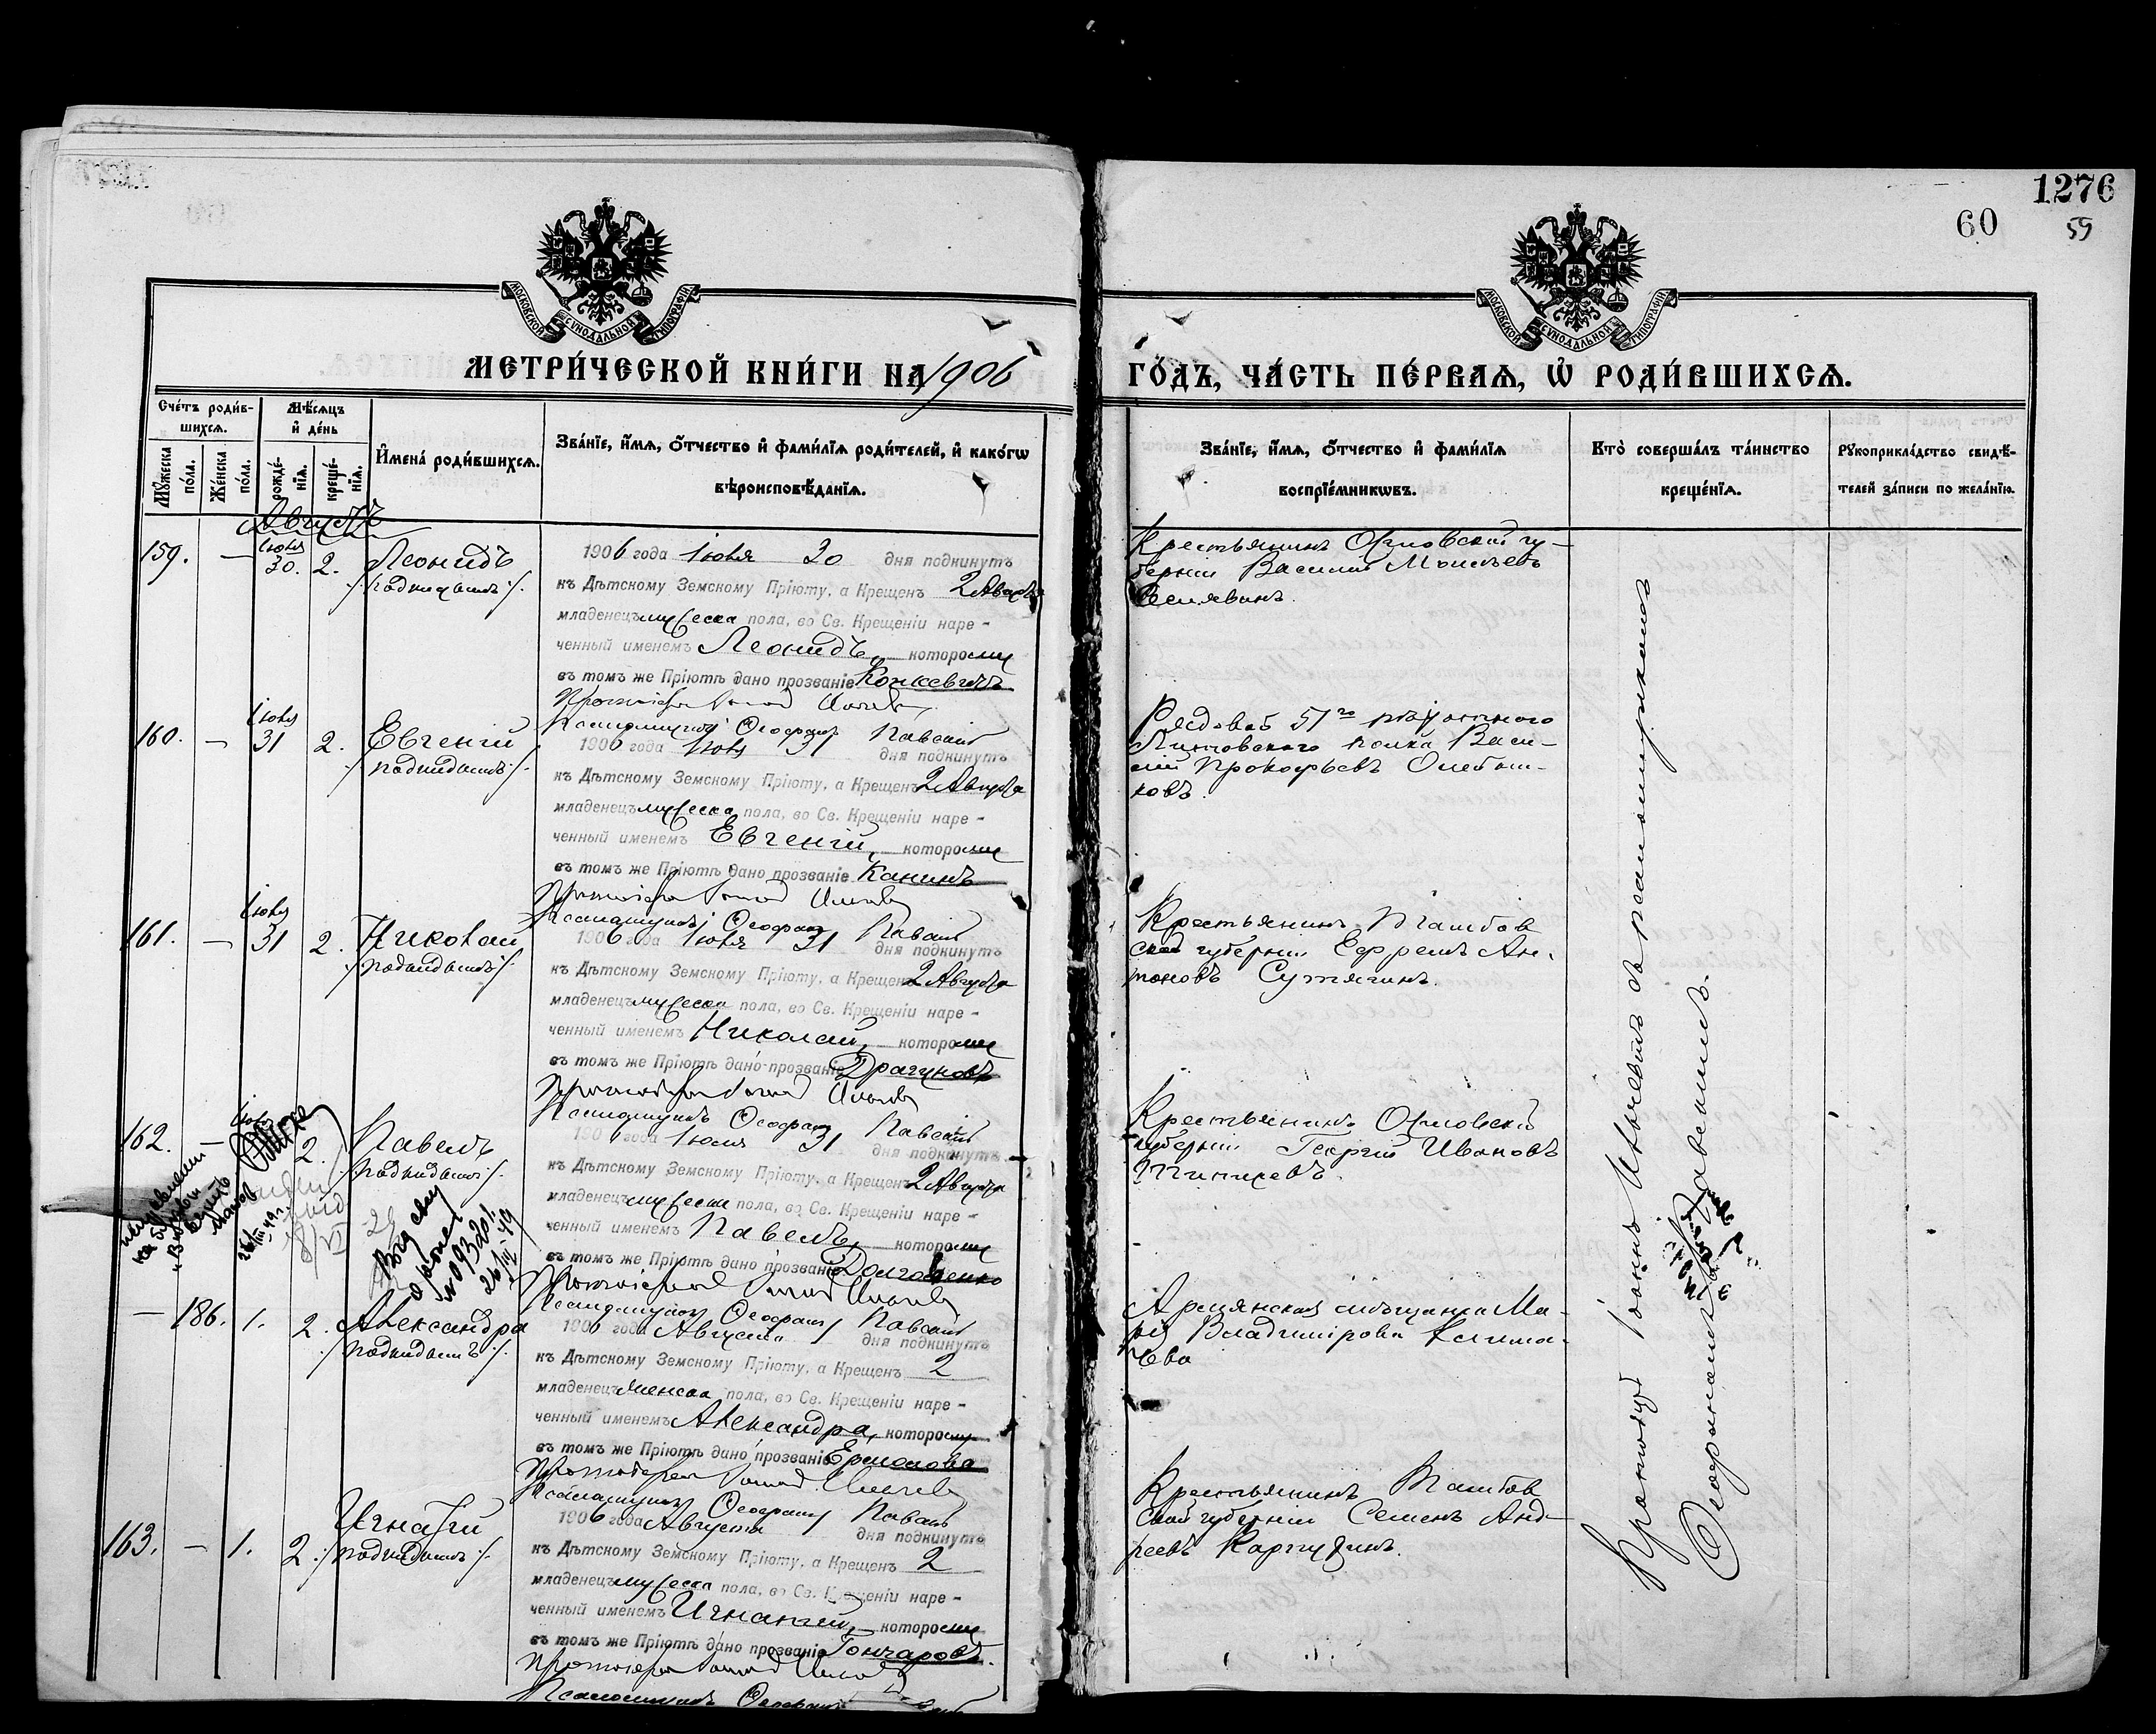 1276
60
59
МОСКОВСКОЙ СѴНОДАЛЬНОЙ ТИПОГРАФІИ
МОСКОВСКОЙ СѴНОДАЛЬНОЙ ТИПОГРАФІИ
МЕТРИ́ЧЕСКОЙ КНИ́ГИ НА 1906
ГО́ДЪ, ЧА́СТЬ ПЕ́РВАѦ, Ѡ҆ РОДИ́ВШИХСѦ.
Сче́тъ роди́в-
шихсѧ.
Мѣ́сѧцъ
и҆ де́нь
Мꙋ́жеска
по́ла.
Же́нска
по́ла.
рожде́-
нїѧ.
креще́-
нїѧ.
И҆мена̀ роди́вшихсѧ.
Зва́нїе, и҆́мѧ, ѻ҆́тчество и҆ фами́лїѧ роди́телей, и҆ како́гѡ
вѣроисповѣ́данїѧ.
Зва́нїе, и҆́мѧ, ѻ҆́тчество и҆ фами́лїѧ
воспрїе́мникѡвъ.
Кто̀ соверша́лъ та́инство
креще́нїѧ.
Рꙋкоприкла́дство свидѣ́-
телей за́писи по жела́нїю.
Августъ
159. — Іюля 30. 2. Леонидъ
/:подкидышъ:/.
1906 года Іюля 30 дня подкинутъ
къ Дѣтскому Земскому Пріюту, а Крещенъ 2 Августа
младенецъ мужеска пола, во Св. Крещеніи наре-
ченный именемъ Леонидъ, которому
въ томъ же Пріютѣ дано прозваніе Конкевичъ
Протоіерей Іоаннъ Ильичевъ
Псаломщикъ Ѳеофанъ Павскій
Крестьянинъ Орловской гу-
берніи Василій Моисѣевъ
160. — Іюля 31 2. Евгеній
/:подкидышъ:/.
1906 года Іюля 31 дня подкинутъ
къ Дѣтскому Земскому Пріюту, а Крещенъ 2 Августа
младенецъ мужеска пола, во Св. Крещеніи наре-
ченный именемъ Евгеній, которому
въ томъ же Пріютѣ дано прозваніе Канинъ
Протоіерей Іоаннъ Ильичевъ
Псаломщикъ Ѳеофанъ Павскій
Рядовой 51го пѣхотнаго
Литовскаго полка Васи-
лій Прокофьевъ
161. — Іюля 31 2. Николай
/:подкидышъ:/.
1906 года Іюля 31 дня подкинутъ
къ Дѣтскому Земскому Пріюту, а Крещенъ 2 Августа
младенецъ мужеска пола, во Св. Крещеніи наре-
ченный именемъ Николай, которому
въ томъ же Пріютѣ дано прозваніе Драгуновъ
Протоіерей Іоаннъ Ильичевъ
Псаломщикъ Ѳеофанъ Павскій
Крестьянинъ Тамбов
ской губерніи Ефремъ Ан-
тоновъ Сутягинъ.
162. — Іюля 2. Павелъ
/:подкидышъ:/.
1906 года Іюля 31 дня подкинутъ
къ Дѣтскому Земскому Пріюту, а Крещенъ 2 Августа
младенецъ мужеска пола, во Св. Крещеніи наре-
ченный именемъ Павелъ, которому
въ томъ же Пріютѣ дано прозваніе
Протоіерей Іоаннъ Ильичевъ
Псаломщикъ Ѳеофанъ Павскій
Крестьянинъ Орловской
губерніи Георгій Ивановъ
— 186. 1. 2. Александра
/:подкидышъ:/.
1906 года Августа дня подкинутъ
къ Дѣтскому Земскому Пріюту, а Крещенъ 2
младенецъ женска пола, во Св. Крещеніи наре-
ченный именемъ Александра, которому
въ томъ же Пріютѣ дано прозваніе Ермолова
Протоіерей Іоаннъ Ильичевъ
Псаломщикъ Ѳеофанъ Павскій
мѣщанка Ма-
рія Владимірова Клима-
чева
163. — 1. 2. Игнатій
/:подкидышъ:/.
1906 года Августа дня подкинутъ
къ Дѣтскому Земскому Пріюту, а Крещенъ 2
младенецъ мужеска пола, во Св. Крещеніи наре-
ченный именемъ Игнатій, которому
въ томъ же Пріютѣ дано прозваніе Гончаровъ.
Протоіерей Іоаннъ Ильичевъ
Псаломщикъ Ѳеофанъ
Крестьянинъ Тамбов
ской губерніи Семенъ Анд-
реевъ
Протоіерей Іоаннъ Ильичевъ съ псаломщикомъ
Ѳеофаномъ Павскимъ.